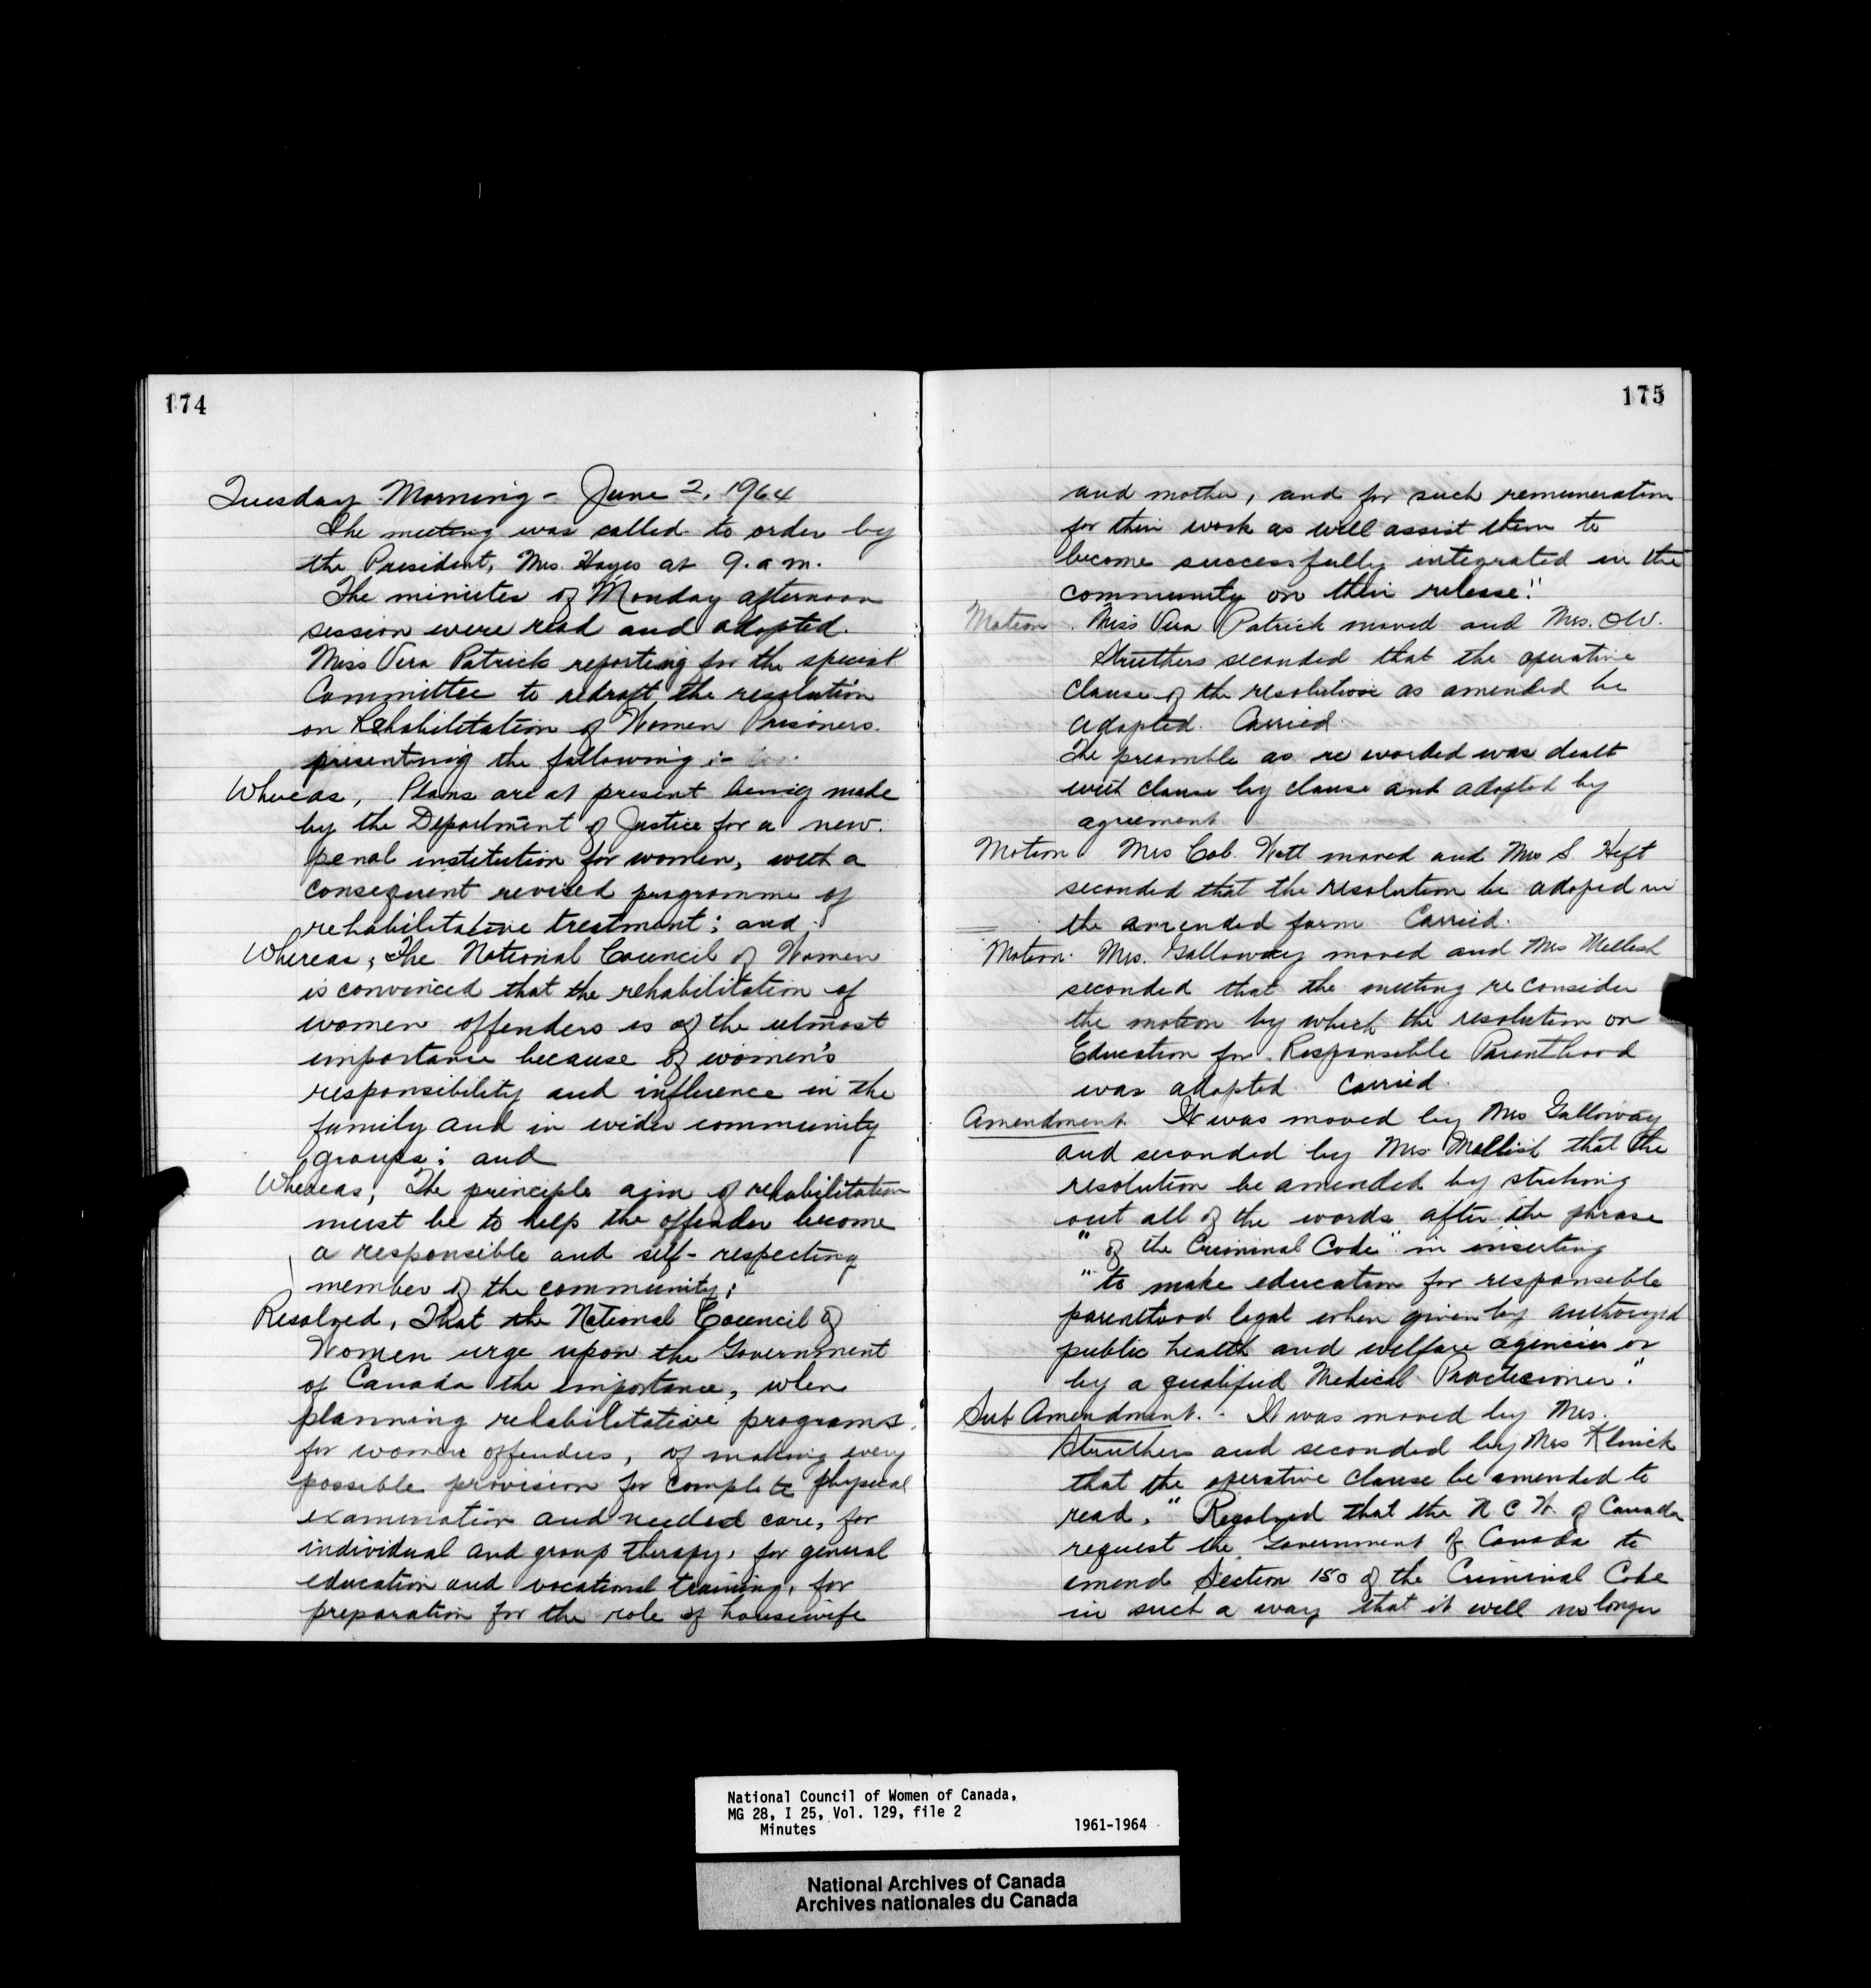 174
Tuesday Morning - June 2, 1964
The meeting was called to order by
the President, Mrs. Hayes at 9. a m.
The minutes of Monday afternoon
session were read and adopted.
Miss Vera Patrick reporting for the special
Committee to redraft the resolution
on Rehabilitation of Women Prisoners.
presenting the following :-
Whereas, Plans are at present being made
by the Department of Justice for a new
penal institution for women, with a
consequent revised programme of
rehabilitative treatment; and
Whereas, The National Council of Women
is convinced that the rehabilitation of
women offenders is of the utmost
importance because of women's
responsibility and influence in the
family and in wider community
groups; and
Whereas, The principle aim of rehabilitation
must be to help the offender become
a responsible and self-respecting
member of the community;
Resolved, That the National Council of
Women urge upon the Government
of Canada the importance, when
planning rehabilitative programs
for women offenders, of making every
possible provision for complete physical
examination and needed care, for
individual and group therapy, for general
education and vocational training, for
preparation for the role of housewife
175
and mother, and for such remuneration
for their work as will assist them to
become successfully integrated in the
community on their release."
Motion. Miss Vera Patrick moved and Mrs. O.W.
Struthers seconded that the operative
clause of the resolution as amended be
adopted. Carried.
The preamble as re worded was dealt
with clause by clause and adopted by
agreement
Motion Mrs Watt moved and Mrs S. Heft
seconded that the resolution be adopted in
the amended form Carried.
Motion. Mrs. Galloway moved and Mrs Mellish
seconded that the meeting reconsider
the motion by which the resolution on
Education for Responsible Parenthood
was adopted. Carried.
Amendment It was moved by Mrs Galloway
and seconded by Mrs Mellish that the
resolution be amended by striking
out all of the words after the phrase
"of the Criminal Code" in inserting
"to make education for responsible
parenthood legal when given by authorized
public health and welfare agencies or
by a qualified Medical Practicioner."
Sub Amendment. - It was moved by Mrs.
Struthers and seconded by Mrs Klinck
that the operative clause be amended to
read, "Resolved that the N C W. of Canada
request the Government of Canada to
amend Section 150 of the Criminal Code
in such a way that it will no longer
National Council of Women of Canada,
MG 28, I 25, Vol. 129, file 2
Minutes 1961-1964
National Archives of Canada
Archives nationales du Canada